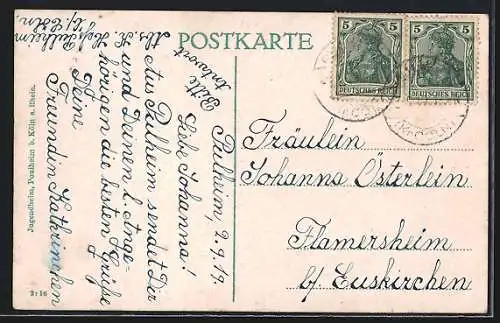 POSTKARTE
5 5
5 5
DEUTSCHES REICH
DEUTSCHES REICH
Fräulein
Johanna Österlein
Flamersheim
b/ Euskirchen
Pulheim, 2.9.19
Liebe Johanna!
Aus Pulheim sendet Dir
und Deinen l. Ange-
hörigen die besten Grüße
Deine
Freundin Kathrinchen
Bitte
Antwort
Abs. K. Hof Pulheim
b/ Cöln.
Jugendheim, Poulheim b. Köln a. Rhein.